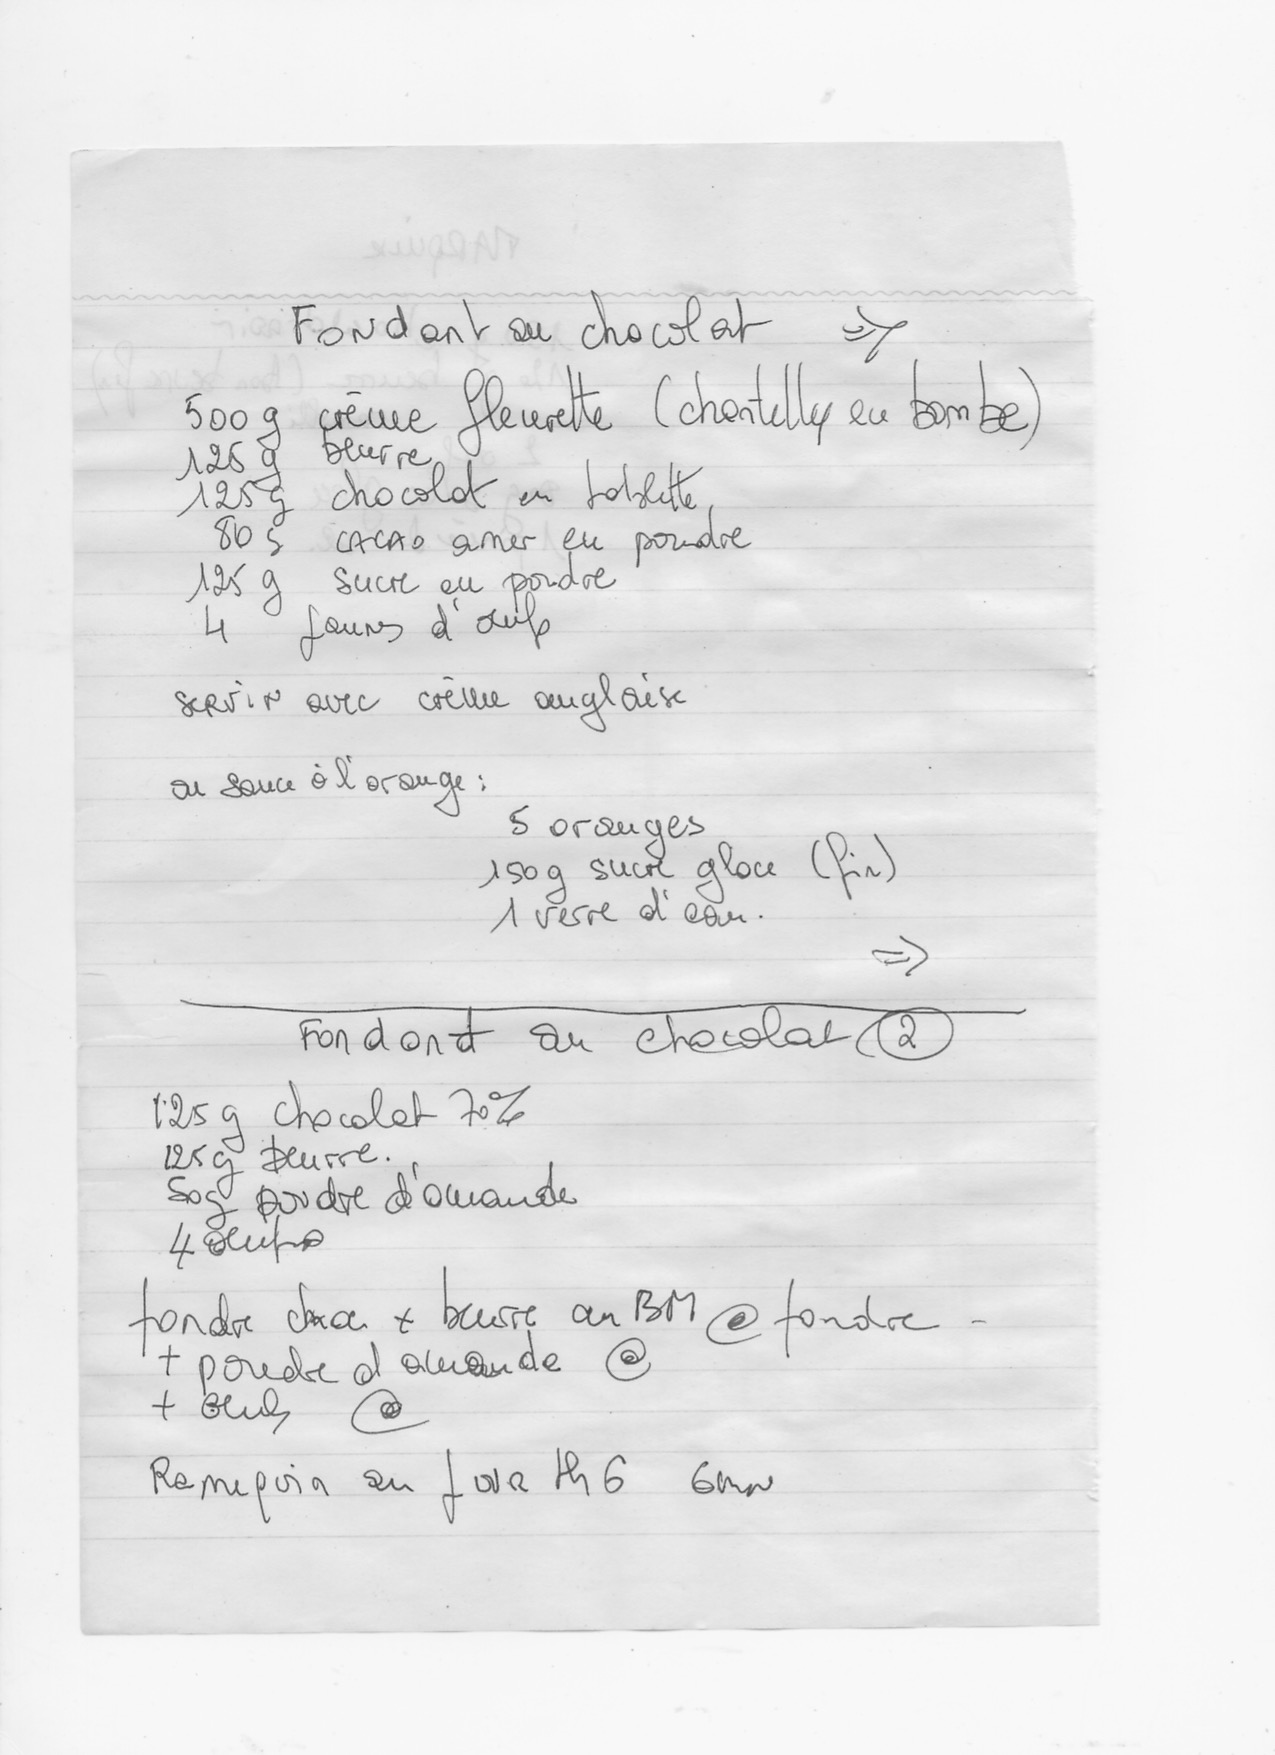 Fondant au chocolat ⇒
500 g crème fleurette (chantelly en bombe)
125 g beurre
125 g chocolat en tablette
80 g cacao amer en poudre
125 g sucre en poudre
4 jaunes d'œufs
servir avec crème anglaise
ou sauce à l'orange :
5 oranges
150 g sucre glace (fin)
1 verre d'eau.
⇒
Fondant au chocolat 2
125 g chocolat 70%
125 g beurre.
50g poudre d'amande
4 œufs
fondre choco + beurre au BM @ fondre -
+ poudre d'amande @
+ œufs @
Ramequin au four th 6 6mn